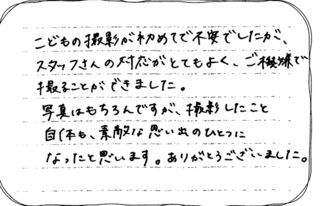 こどもの撮影が初めてで不安でしたが、
スタッフさんの対応がとてもよく、ご機嫌で
撮ることができました。
写真はもちろんですが、撮影したこと
自体も、素敵な思い出のひとつに
なったと思います。ありがとうございました。